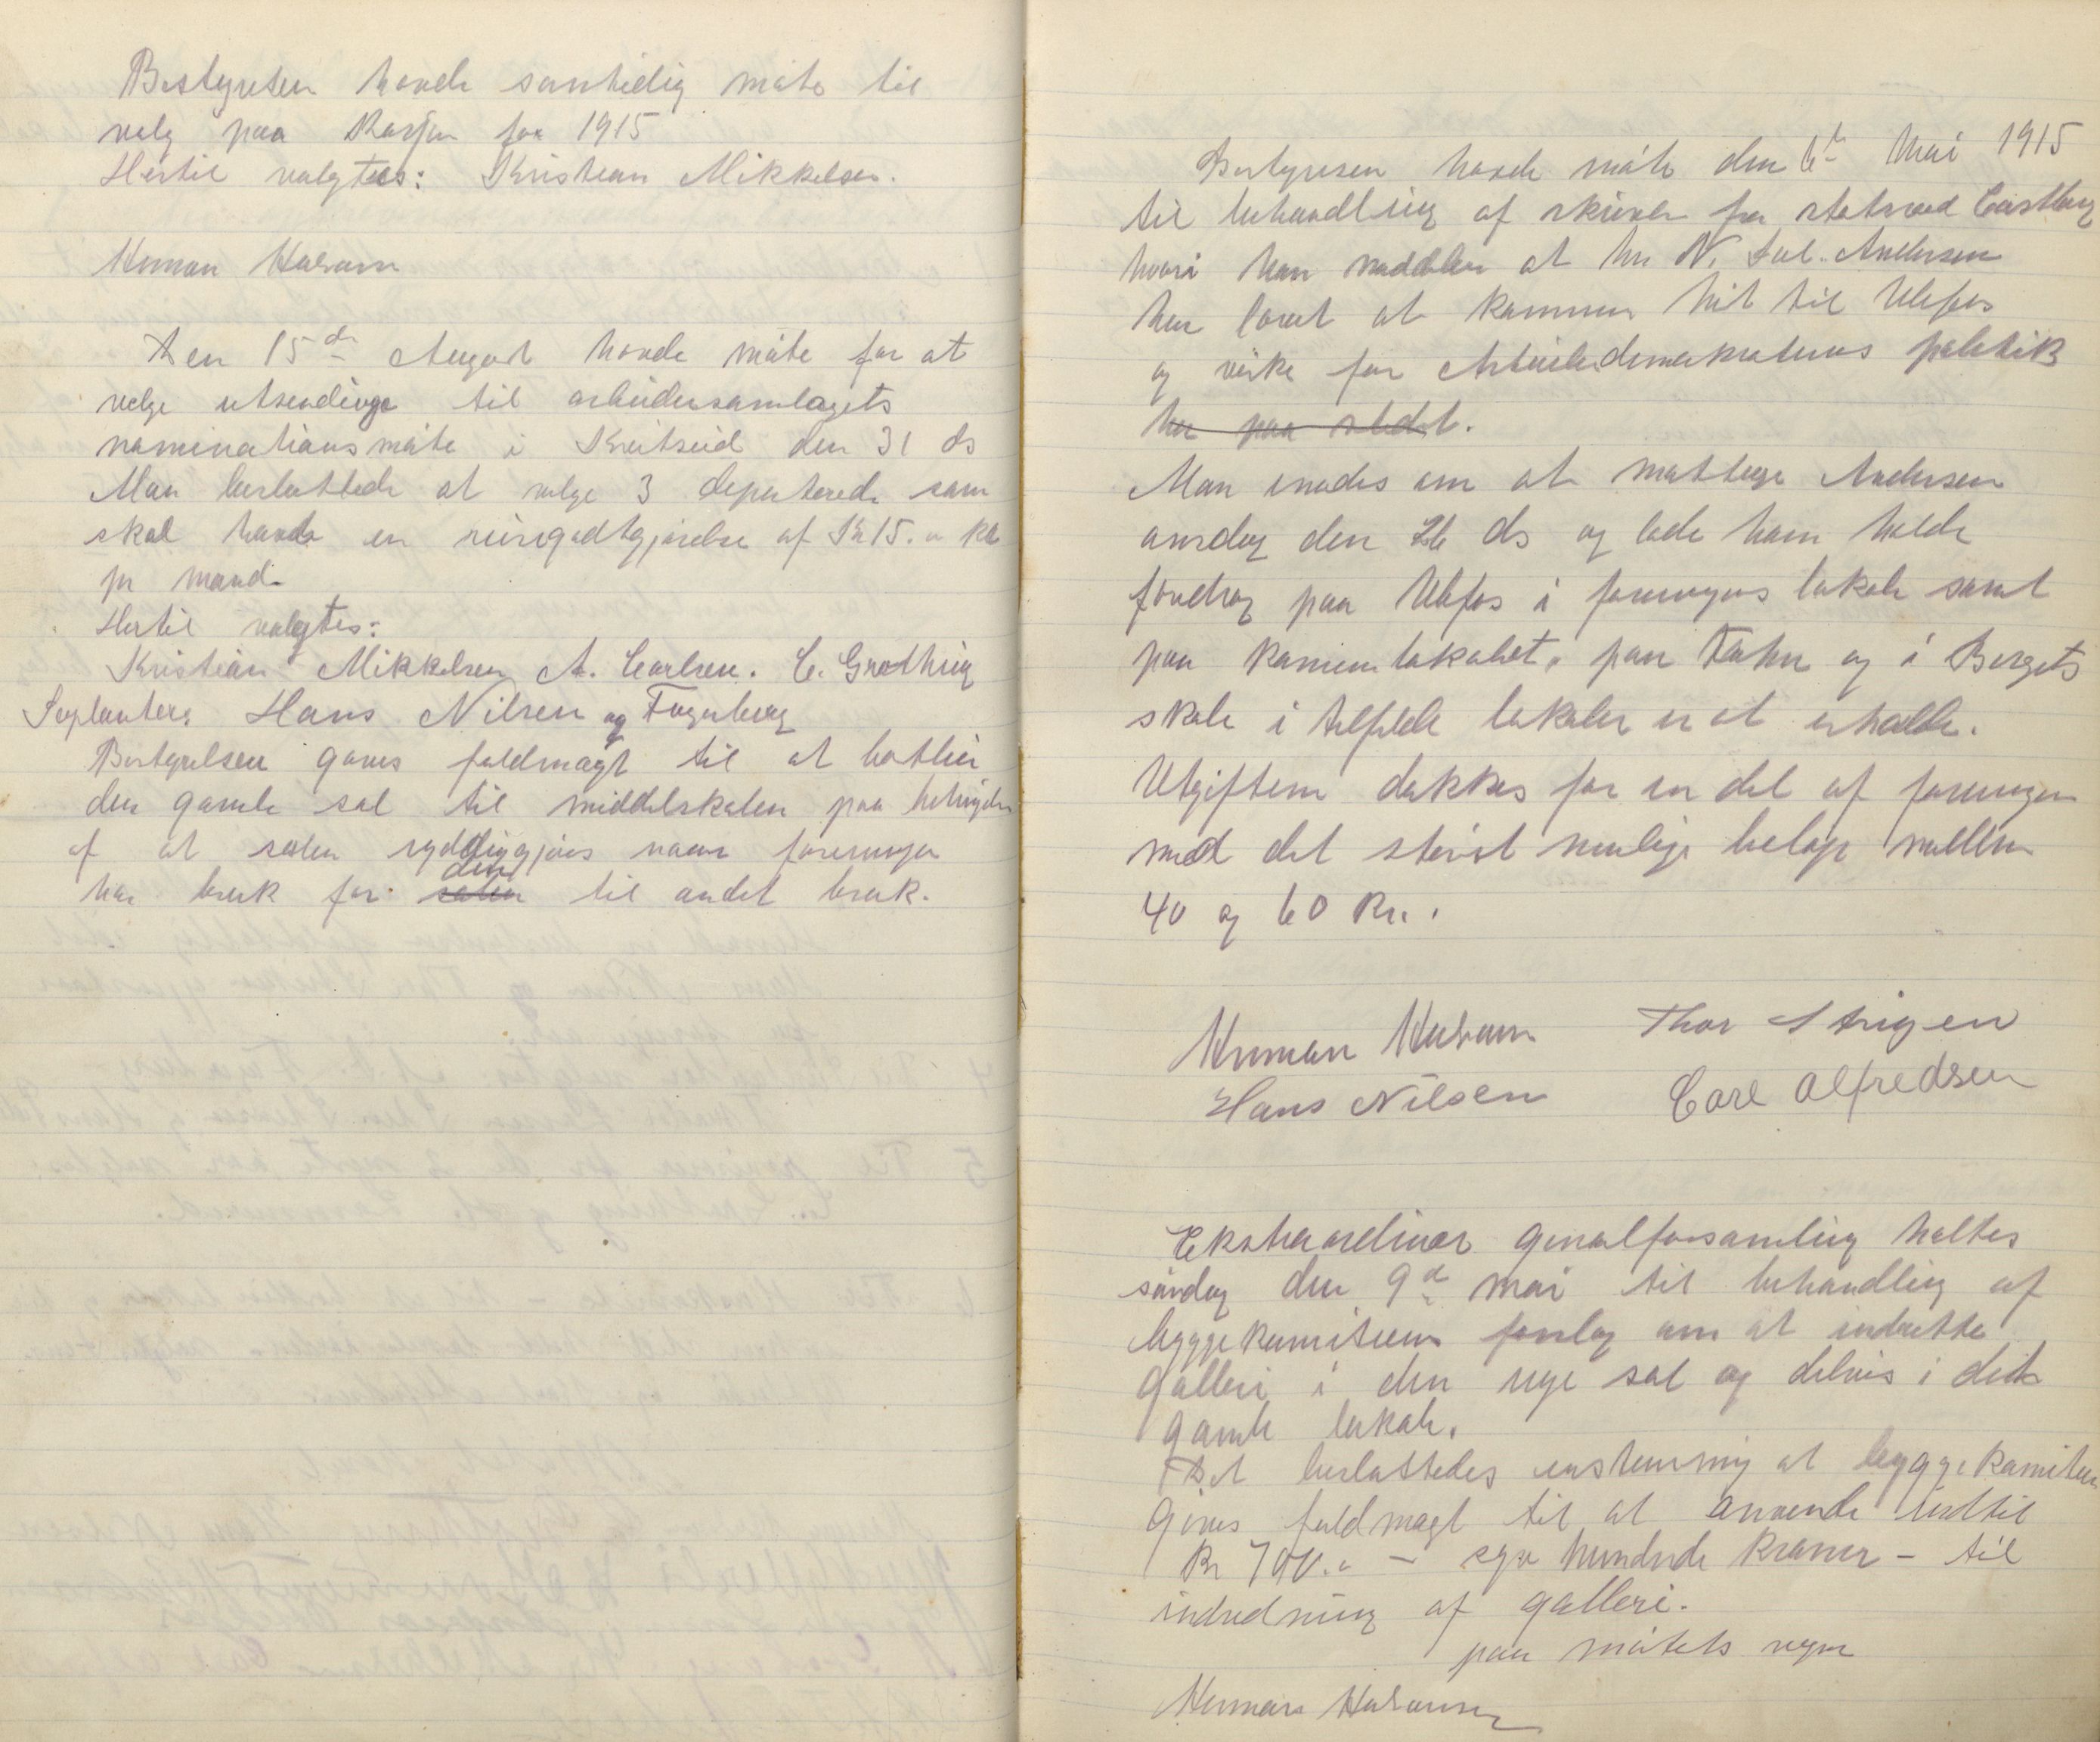 Bestyrelsen havde samtidig møte til
valg paa Kasjer for 1915
Hertil valgtes: Kristian Mikkelsen.
Herman
Den 15de August havde møte for at
velge utsendinge til arbeidersamlagets
nominationsmøte i Kviteseid den 31 ds
Man besluttede at velge 3 deputerede som
skal havde en reisegodtgjørelse af Kr 15.
pr mand.
Hertil valgtes:
Kristian Mikkelsen, A. Carlsen. C. Grøthing
Suplanter: Hans Nilsen og Fagerberg
Bestyrelsen gaves fuldmagt til at bortleie
den gamle sal til middelskolen paa betingelse
af at salen ryddiggjøres naar foreningen
har bruk for salen den til andet bruk.
Bestyrelsen havde møte den 6te Mai 1915
til behandling af skrivelse fra statsraad Castberg
hvori han meddeler at hr N. Jul. Andersen
har lovet at komme hit til Ulefos
og virke for Arbeiderdemokraternes politik
her paa stedet.
Man enedes om at mottage Andersen
onsdag den 26 ds og lade ham holde
foredrag paa Ulefos i foreningens lokale samt
paa kommunelokalet, paa Tahn og i Bergets
skole i tilfelde lokaler er at erholde.
Utgifterne dekkes for en del af foreningen
med det størst mulige beløp mellem
40 og 60 Kr..
Herman
Thor Stigen
Hans Nilsen
Carl Alfredsen
Ekstraordinær generalforsamling holtes
søndag den 9de mai til behandling af
byggekomiteens forslag om at indrette
galleri i den nye sal og delvis i det
gamle lokale.
Det besluttedes enstemmig at byggekomiteen
gives fuldmagt til at anvende indtil
Kr 700.- – syv hundrede kroner – til
indredning af galleri.
paa møtets vegne
Herman